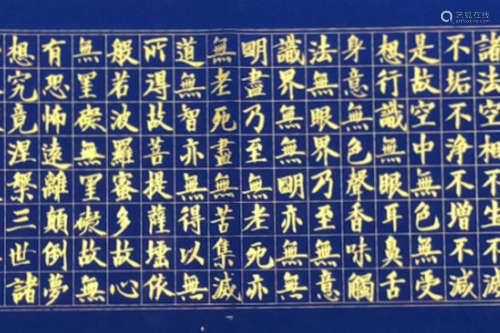 諸法空相不生不滅
不垢不淨不增不減
是故空中無色無受
想行識無眼耳鼻舌
身意無色聲香味觸
法無眼界乃至無意
識界無無明亦無無
明盡乃至無老死亦
無老死盡無苦集滅
道無智亦無得以無
所得故菩提薩埵依
般若波羅蜜多故心
無罣礙無罣礙故無
有恐怖遠離顛倒夢
想究竟涅槃三世諸